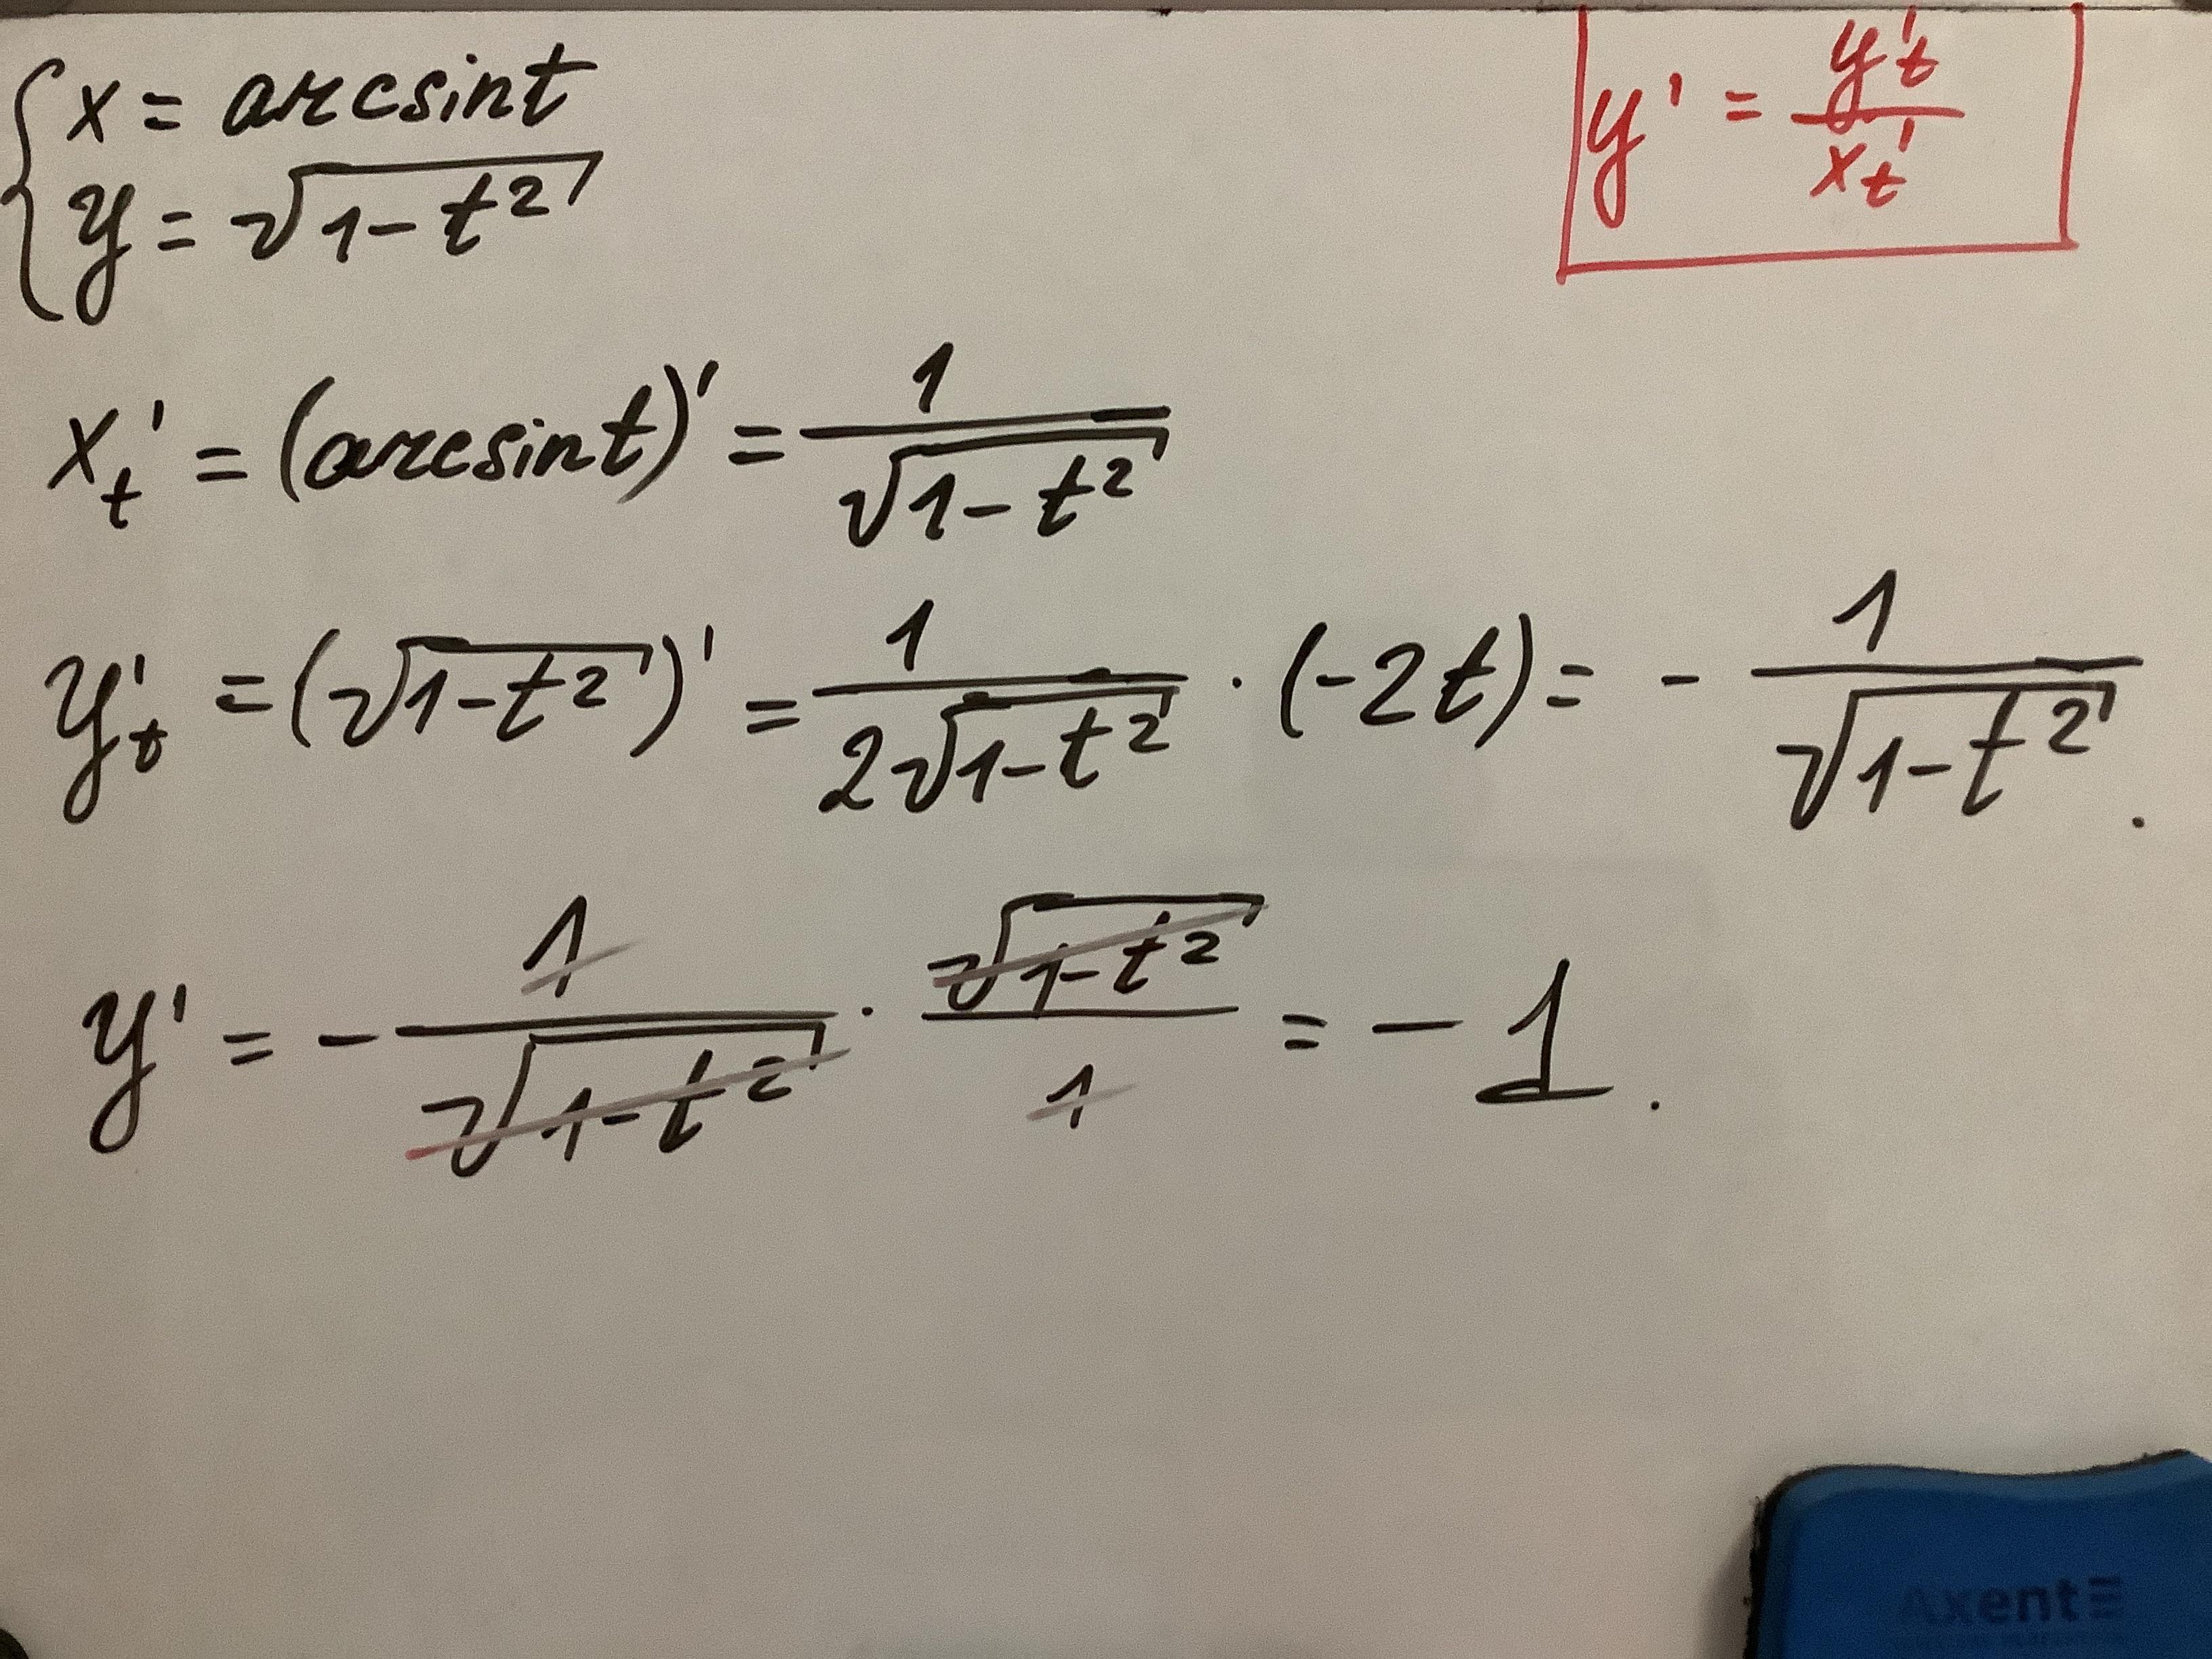 { x = arcsint
y = √(1-t²)
y' = y't / xt'
xt' = (arcsint)' = 1/√(1-t²)
y't = (√(1-t²))' = 1/(2√(1-t²)) · (-2t) = - 1/√(1-t²).
y' = - 1/√(1-t²) · √(1-t²)/1 = -1.
Axent